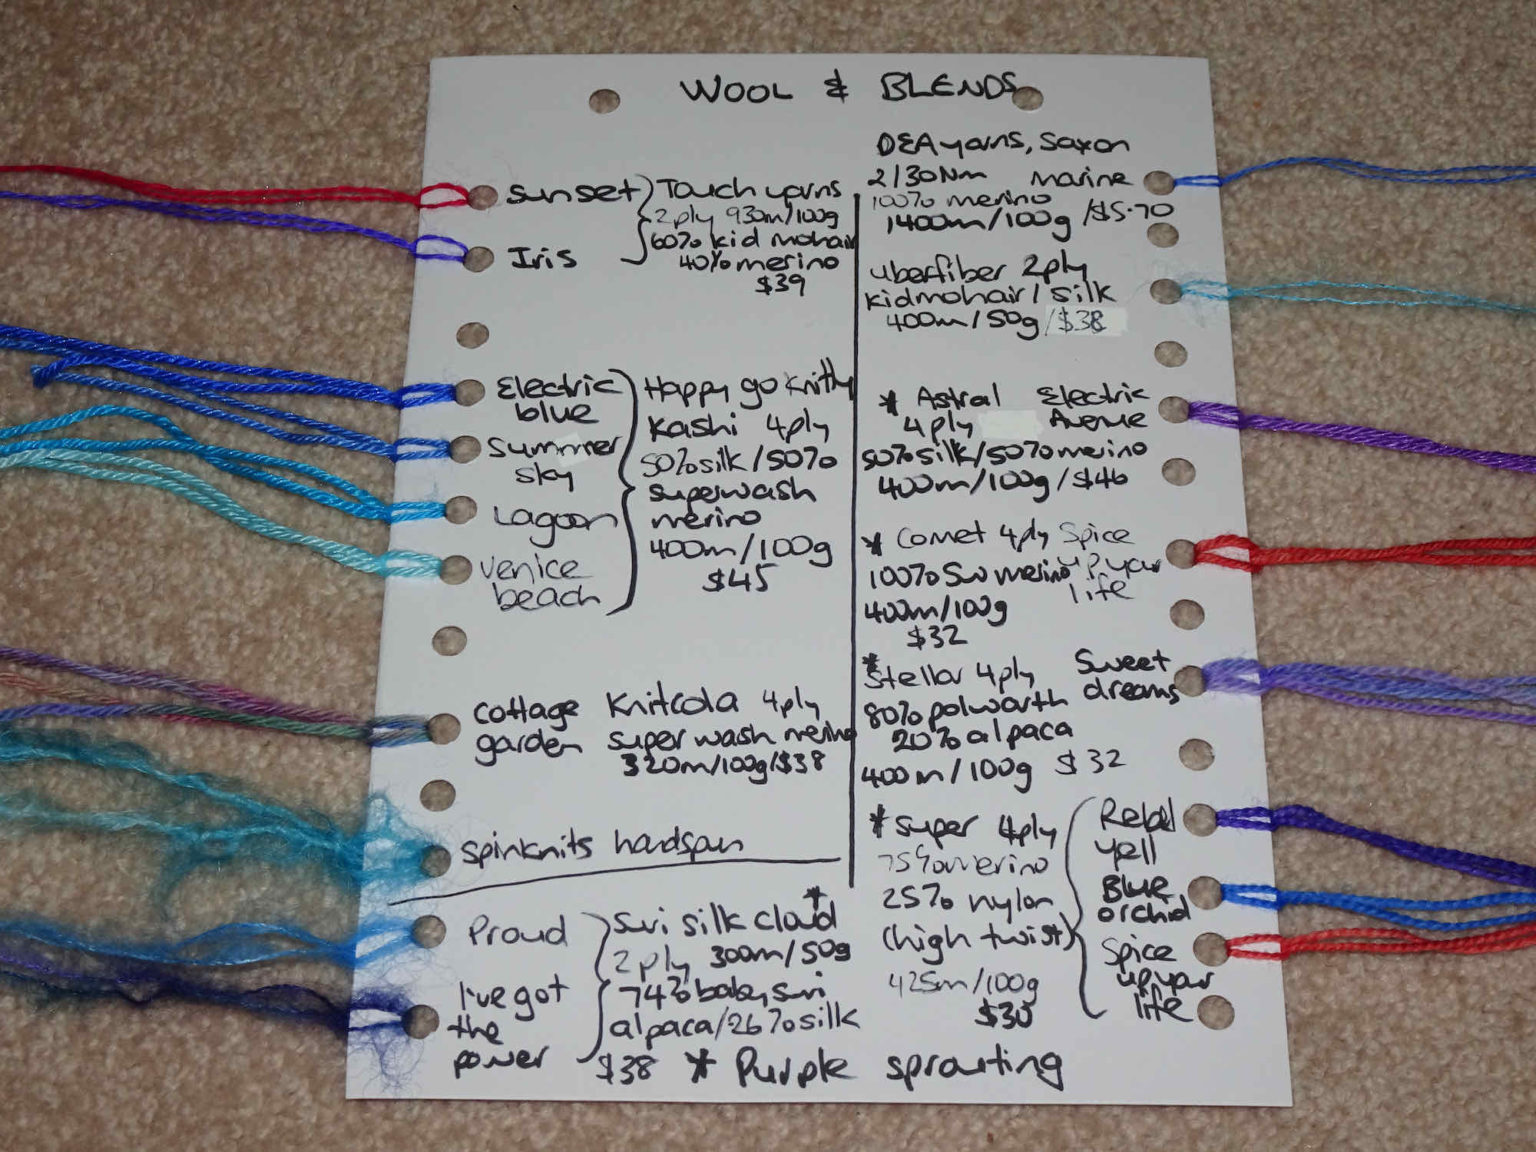 WOOL & BLENDS
sunset Touch yarns
2ply 930m/100g
60% kid mohair
Iris 40% merino
$39
Electric blue Happy go knitty
Kashi 4ply
summer sky 50% silk/50%
superwash
Lagoon merino
400m/100g
venice beach $45
cottage Knitcola 4ply
garden super wash merino
320m/100g/$38
spinknits handspun
Proud suri silk cloud *
2 ply 300m/50g
I've got 74% baby suri
the alpaca/26% silk
power $38
* Purple sprouting
DEA yarns, saxon
2/30Nm marine
100% merino
1400m/100g /$15.70
uberfiber 2ply
kidmohair/silk
400m/50g/$38
* Astral Electric
4ply Avenue
50% silk/50% merino
400m/100g/$46
* Comet 4ply Spice
100% SW merino up your
400m/100g life
$32
*
Stellar 4ply Sweet
80% polwarth dreams
20% alpaca
400m/100g $32
* super 4ply Rebel
75% merino yell
25% nylon Blue
(high twist) orchid
425m/100g Spice
$30 up your
life